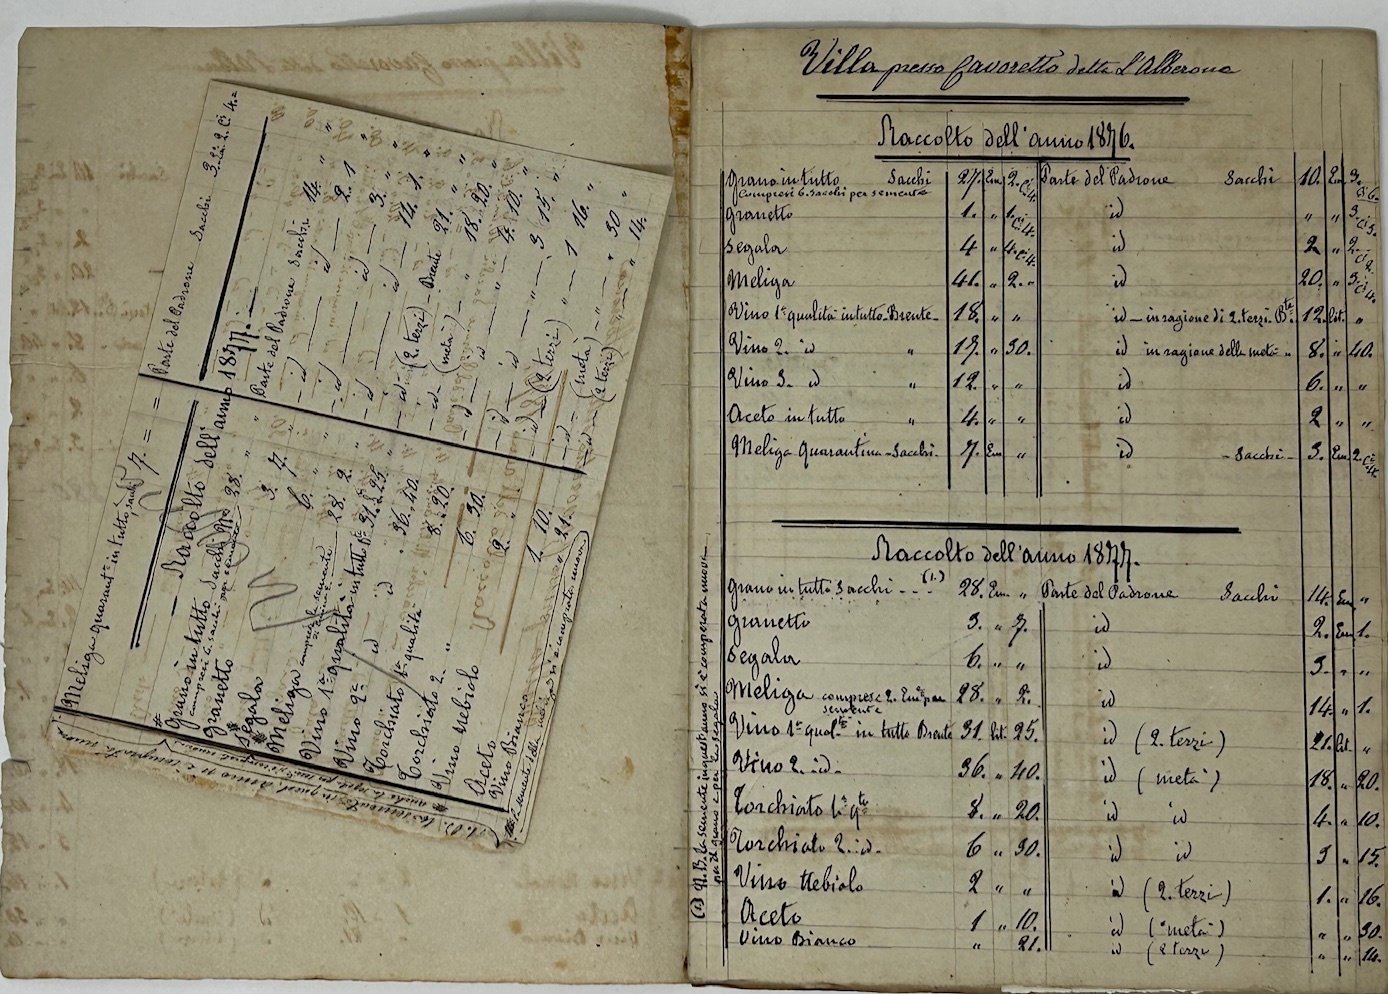 Villa presso Cavoretto detta l'Alberona
Raccolto dell'anno 1876.
Grano in tutto Sacchi 27. Em 2. Ci 4. Parte del Padrone Sacchi 10. Em 3. Ci 6.
Compresi 6. Sacchi per semente
Granetto 1. " 1. Ci 4. id " " 3. Ci 3.
Segala 4 " 4. Ci 4. id 2 " 2. Ci 2.
Meliga 41. " 2. " id 20. " 3 Ci 4.
Vino 1a qualità in tutto Brente 18. " " id in ragione di 2. terzi Bte 12. Lit. "
Vino 2. id " 17. " 30. id in ragione della metà " 8. " 40.
Vino 3. id " 12. " " id 6. " "
Aceto in tutto " 4. " " id 2 " "
Meliga Quarantina Sacchi 7. Em " id Sacchi 3. Em 2. Ci 4.
Raccolto dell'anno 1877.
Grano in tutto Sacchi (1.) 28. Em " Parte del Padrone Sacchi 14. Em "
Granetto 3. " 7. id 2. Em 1.
Segala 6. " " id 3. " "
Meliga comprese 2. Emi per 28. " 2. id 14. " 1.
semente
Vino 1a qualte in tutto Brente 31 Lit. 25. id (2. terzi) 21. Lit. "
Vino 2. id. 36. " 40. id (metà) 18. " 20.
Torchiato 1a qte 8. " 20. id id 4. " 10.
Torchiato 2. id. 6 " 30. id id 3 " 15.
Vino Nebiolo 2 " " id (2. terzi) 1. " 16.
Aceto 1 " 10. id (metà) " " 30.
Vino Bianco " 21. id (2 terzi) " " 14.
(1) N.B. La semente in quest'anno si è comperata nuova
per il grano e per la segala
Meliga quarantna in tutto, Sacchi 7. = = Parte del Padrone Sacchi 3. Emi 2. Ci 4. =
Raccolto dell'anno 1877.
Grano in tutto Sacchi No 28. " Parte del Padrone Sacchi 14. "
compresi 6. sacchi per semente
Granetto 3. 7. id 2. 1
Segala 6. " id 3. "
Meliga 28. 2. id 14. 1.
Vino 1a qualità in tutto Bte 31. L. 25. id (2. terzi) Brente 21. "
Vino 2a id 36. 40. id (metà) " 18. 20.
Torchiato 1a qualità 8. 20. id " 4. 10.
Torchiato 2. " 6. 30. id " 3 15.
Vino Nebiolo 2. " id (2 terzi) " 1 16.
Aceto 1 10. id (metà) " 30
Vino Bianco " 21. id (2 terzi) " 14.